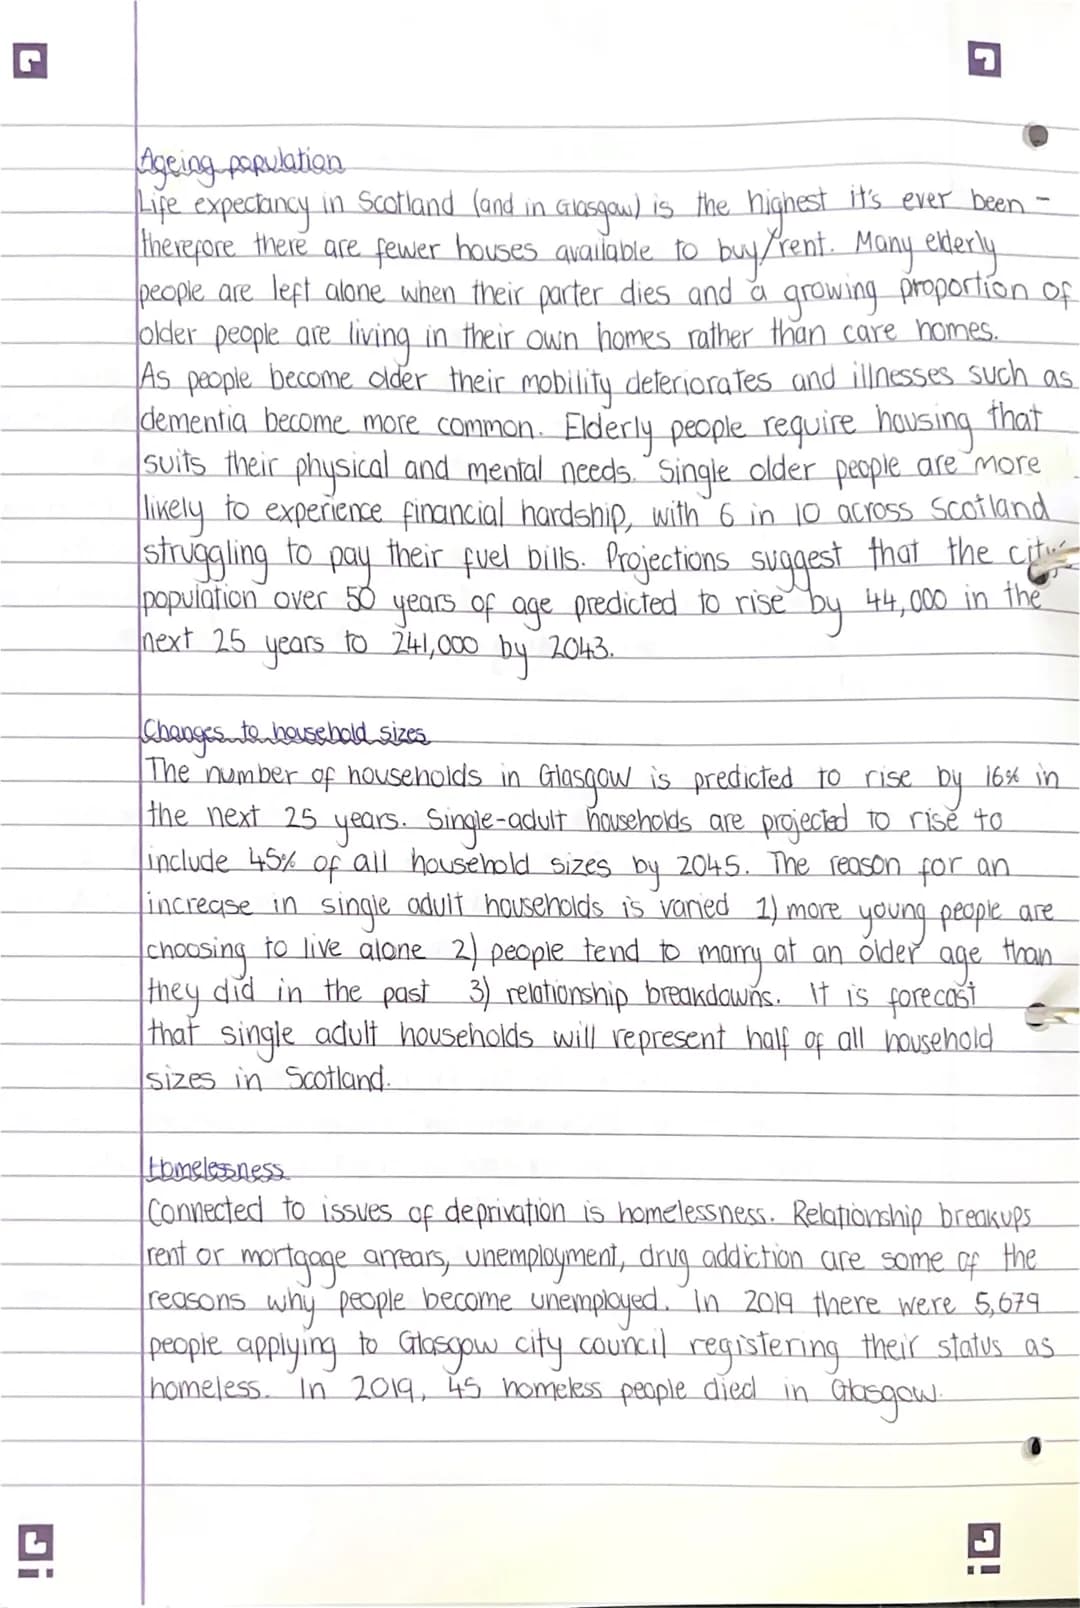 Ageing population
Life expectancy in Scotland (and in Glasgow) is the highest it's ever been -
therefore there are fewer houses available to buy/rent. Many elderly
people are left alone when their parter dies and a growing proportion of
older people are living in their own homes rather than care homes.
As people become older their mobility deteriorates and illnesses such as
dementia become more common. Elderly people require housing that
suits their physical and mental needs. Single older people are more
likely to experience financial hardship, with 6 in 10 across Scotland
struggling to pay their fuel bills. Projections suggest that the
population over 50 years of age predicted to rise by 44,000 in the
next 25 years to 241,000 by 2043.
Changes to household sizes
The number of households in Glasgow is predicted to rise by 16% in
the next 25 years. Single-adult households are projected to rise to
include 45% of all household sizes by 2045. The reason for an
increase in single adult households is varied 1) more young people are
choosing to live alone 2) people tend to marry at an older age than
they did in the past 3) relationship breakdowns. It is forecast
that single adult households will represent half of all household
sizes in Scotland.
Homelessness
Connected to issues of deprivation is homelessness. Relationship breakups
rent or mortgage arrears, unemployment, drug addiction are some of the
reasons why people become unemployed. In 2019 there were 5,679
people applying to Glasgow city council registering their status as
homeless. In 2019, 45 homeless people died in Glasgow.